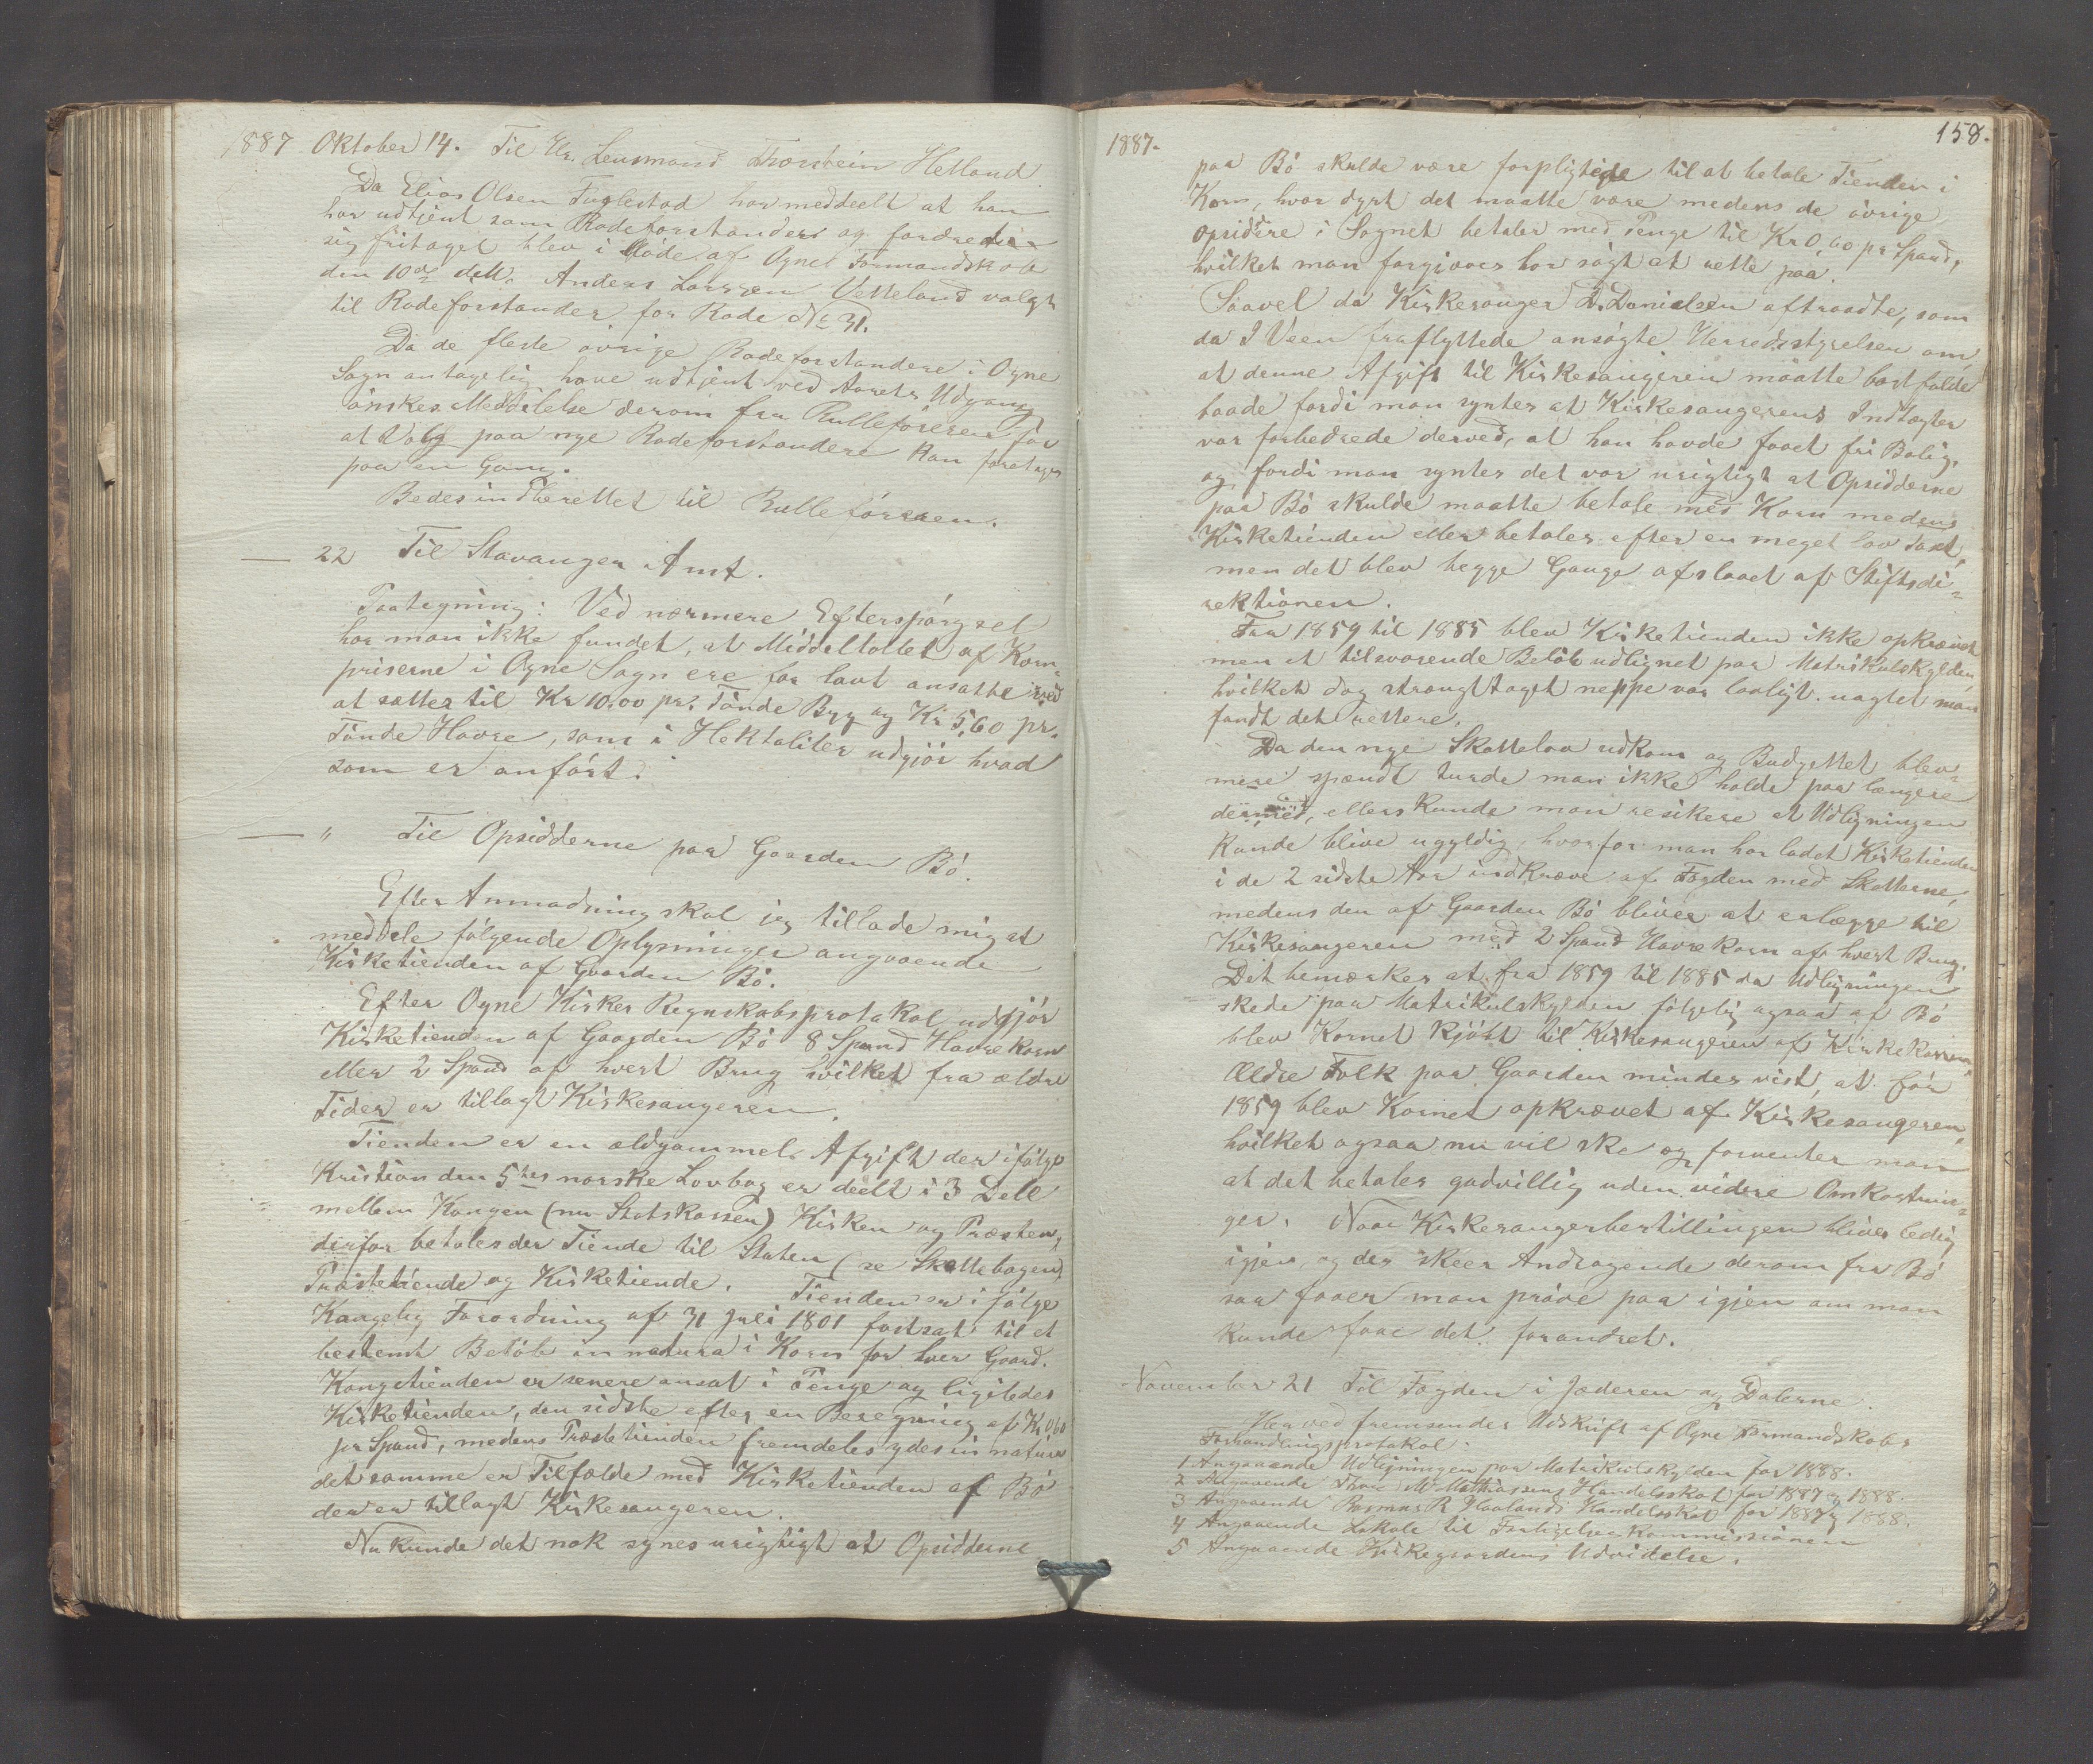 1887 Oktober 14. Til Hr. Lensmand Thorstein Helland
Da Elias Olsen Fuglestad har meddeelt at han
har udtjent som Rodeforstander og fordrer
sig fritaget blev i Møde af Ogne Formandskab
den 10de ds. Anders Larssen Vetteland valgt
til Rodeforstander for Rode No 31.
Da de fleste øvrige Rodeforstandere i Ogne
Sogn antagelig have udtjent ved Aarets Udgang
ønskes Meddelelse derom fra Rulleføreren før
at Valg paa nye Rodeforstandere kan foretages
paa en Gang.
Bedes indberettet til Rulleføreren.
— 22 Til Stavanger Amt.
Paategning: Ved nærmere Efterspørgsel
har man ikke fundet, at Middeltallet af Korn-
priserne i Ogne Sogn ere for lavt ansatte ved
at sættes til Kr 10,00 pr. Tønde Byg og Kr 5,60 pr.
Tønde Havre, som i Hektoliter udgjør hvad
som er anført.
— " Til Opsidderne paa Gaarden Bø.
Efter Anmodning skal jeg tillade mig at
meddele følgende Oplysninger angaaende
Kirketienden af Gaarden Bø.
Efter Ogne Kirkes Regnskabsprotokol udgjør
Kirketienden af Gaarden Bø 8 Spand Havrekorn
eller 2 Spand af hvert Brug hvilket fra ældre
Tider er tillagt Kirkesangeren.
Tienden er en ældgammel Afgift der ifølge
Kristian den 5tes norske Lovbog er deelt i 3 Dele
mellem Kongen (nu Statskassen) Kirken og Præsten,
derfor betales der Tiende til Staten (se Skattebogen)
Præstetiende og Kirketiende. Tienden er ifølge
Kongelig Forordning af 31 Juli 1801 fastsat til et
bestemt Beløb in natura i Korn for hver Gaard.
Kongetienden er senere ansat i Penge og ligeledes
Kirketienden, den sidste efter en Beregning af Kr 0,60
pr Spand, medens Præstetienden fremdeles ydes in natura
det samme er Tilfælde med Kirketienden af Bø
der er tillagt Kirkesangeren.
Nu kunde det nok synes urigtigt at Opsidderne
1887.
158.
paa Bø skulde være forpligtede til at betale Tienden i
Korn, hvor dyrt det maatte være medens de øvrige
Opsiddere i Sognet betaler med Penge til Kr 0,60 pr Spand,
hvilket man forgjæves har søgt at rette paa.
Saavel da Kirkesanger D. Danielsen aftraadte, som
da I Veen fraflyttede ansøgte Herredsstyrelsen om,
at denne Afgift til Kirkesangeren maatte bortfalde
baade fordi man syntes at Kirkesangerens Indtægter
var forbedrede derved, at han havde faaet fri Bolig,
og fordi man syntes det var urigtigt at Opsidderne
paa Bø skulde maatte betale med Korn medens
Kirketienden ellers betales efter en meget lav Taxt,
men det blev begge Gange afslaaet af Stiftsdi-
rektionen.
Fra 1859 til 1885 blev Kirketienden ikke opkrævet
men et tilsvarende Beløb udlignet paa Matrikulskylden,
hvilket dog strængt taget neppe var lovligt uagtet man
fandt det rettere.
Da den nye Skattelov udkom og Budgettet blev
mere spændt turde man ikke holde paa længere
dermed, ellers kunde man resikere at Udligningen
kunde blive ugyldig, hvorfor man har ladet Kirketienden
i de 2 sidste Aar indkræve af Fogden med Skatterne,
medens den af Gaarden Bø bliver at erlægge til
Kirkesangeren med 2 Spand Havrekorn af hvert Brug.
Det bemærkes at fra 1859 til 1885 da Udligningen
skede paa Matrikulskylden følgelig ogsaa af Bø
blev Kornet kjøbt til Kirkesangeren af Kirkekassen,
Ældre Folk paa Gaarden mindes vist, at før
1859 blev Kornet opkrævet af Kirkesangeren,
hvilket ogsaa nu vil ske og forventer man
at det betales godvillig uden videre Omkostnin-
ger. Naar Kirkesangerbestillingen bliver ledig
igjen, og der skeer Andragende derom fra Bø
saa faaer man prøve paa igjen om man
kunde faae det forandret.
November 21 Til Fogden i Jæderen og Dalerne.
Herved fremsendes Udskrift af Ogne Formandskabs
Forhandlingsprotokol:
1 Angaaende Udligningen paa Matrikulskylden for 1888.
2 Angaaende Thore M Mathiassens Handelsskat for 1887 og 1888.
3 Angaaende Rasmus R Haalands Handelsskat for 1887 og 1888.
4 Angaaende Lokale til Forligelseskommissionen
5 Angaaende Kirkegaardens Udvidelse.